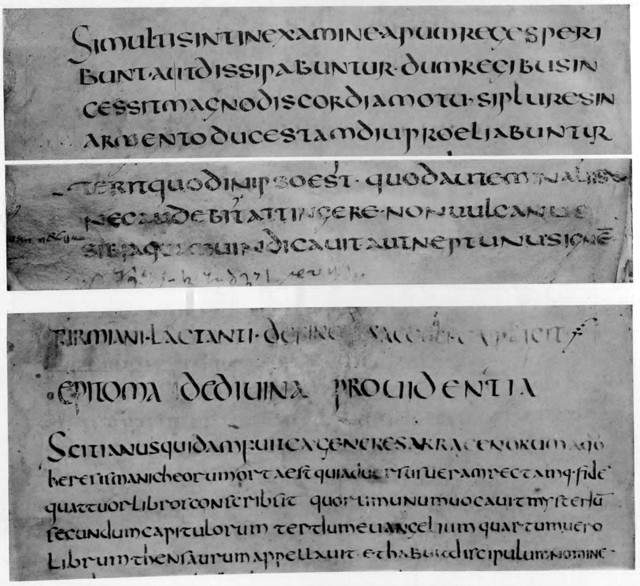 SIMULTISINTINEXAMINE·APUMREGESPERI
BUNT·AUTDISSIPABUNTUR·DUMREGIBUSIN
CESSITMAGNODISCORDIAMOTU·SIPLURESIN
ARMENTODUCESTAMDIUPROELIABUNTUR
TERITQUODINIPSOEST· QUODAUTEMINALIIS
NECAUDEBITATTINGERE·NONUULCANUS
SIBIAQUASUINDICAUITAUTNEPTUNUSIGNĒ
FIRMIANI·LACTANTI·DE
EPITOMA DEDIUINA PROUIDENTIA
SCITIANUSQUIDAMFUITEXGENERESARRACENORUM
heresismanicheorumortaest quiaduersusueramrectamq·fidē
quattuorlibrosconscribsit quorumunumuocauitmysteriū
secundumcapitulorum tertiumeuangelium quartumuero
librumthensaurumappellauit·ethabuitdiscipulumnomine·